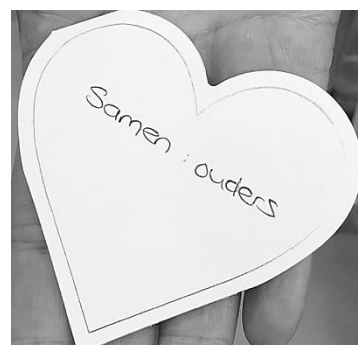 Samen : ouders